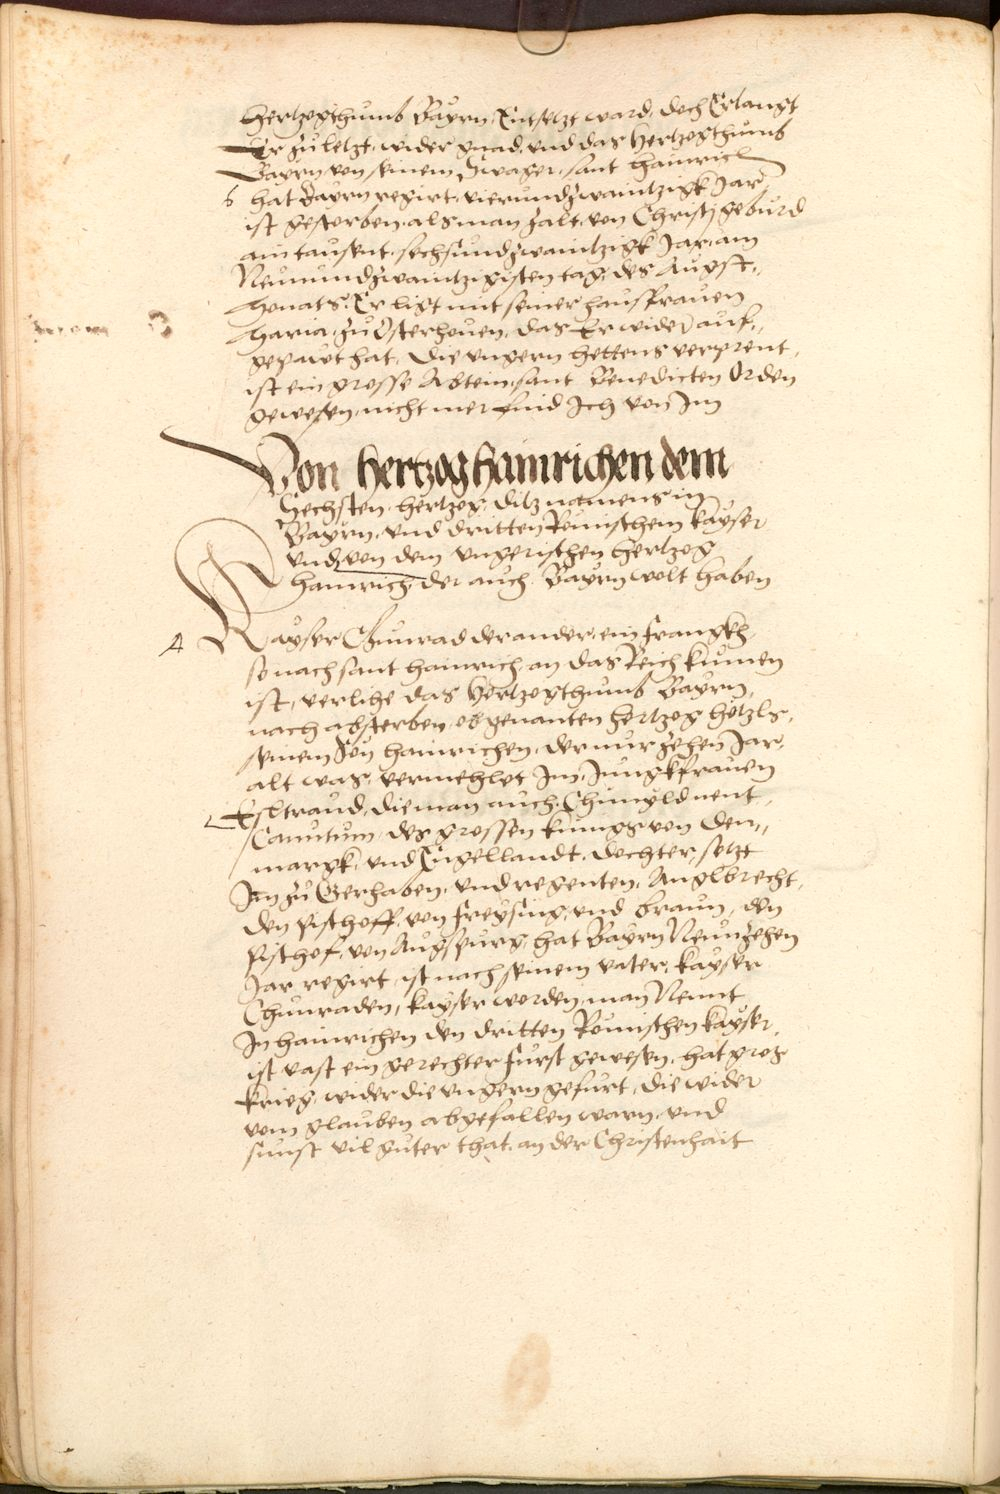 hertzogthumb Bayrn, Entsetzt ward, doch Erlangt
Er zuletzt, wider gnad, und das Hertzogthumb
Bayrn von seinem Swager, sant Hainrich
hat Bayrn regirt, vierundzwaintzigk Jar,
ist gestorben, als man zalt, von Christj geburd
ain tausent, sechsundzwaintzigk Jar, am
Neunundzwaintzigisten tag, des Augst,,
Monats, Er ligt mit seiner hausfrauen
Maria, zu Osterhouen, das Er wider auf,,
gepawt hat, die ungern hettens verprent,
ist ein grosse Abtein, sant Benedicten Orden
gewesen, nicht mer find Ich von Im
Von hertzog hainrichen dem
Sechsten, hertzog, ditz namens in
Bayrn, und dritten Römischem kayser
und von dem ungerischen hertzog
hainrich, der auch Bayrn wolt haben
Kayser Chunrad der ander, ein frangkh,
so nach sant hainrich, an das Reich kumen
ist, verlihe das Hertzogthumb Bayrn,
nach absterben, obgenanten hertzog hetzls,
seinem Sun hainrichen, der nur zehen Jar,
alt was, vermehlet Im, Jungkfrauen
Esltraud, die man auch Chinigld nent,
Canutum, des grossen kunigs von Den,,
margk, und Engellandt, dochter, setzt
Im zu Gerhaben, und regenten, Anglbrecht,
den pischoff, von freysing, und braun, den
pischof, von Augspurg, hat Bayrn Neunzehen
Jar regirt, ist nach seinem vater, kayser
Chunraden, kayser worden, man Nennt
In hainrichen den dritten Römischen kayser,
ist vast ein gerechter furst gewesen, hat gros
krieg, wider die ungern gefurt, die wider
vom glauben abgefallen warn, und
sunst vil guter that, an der Christenhait